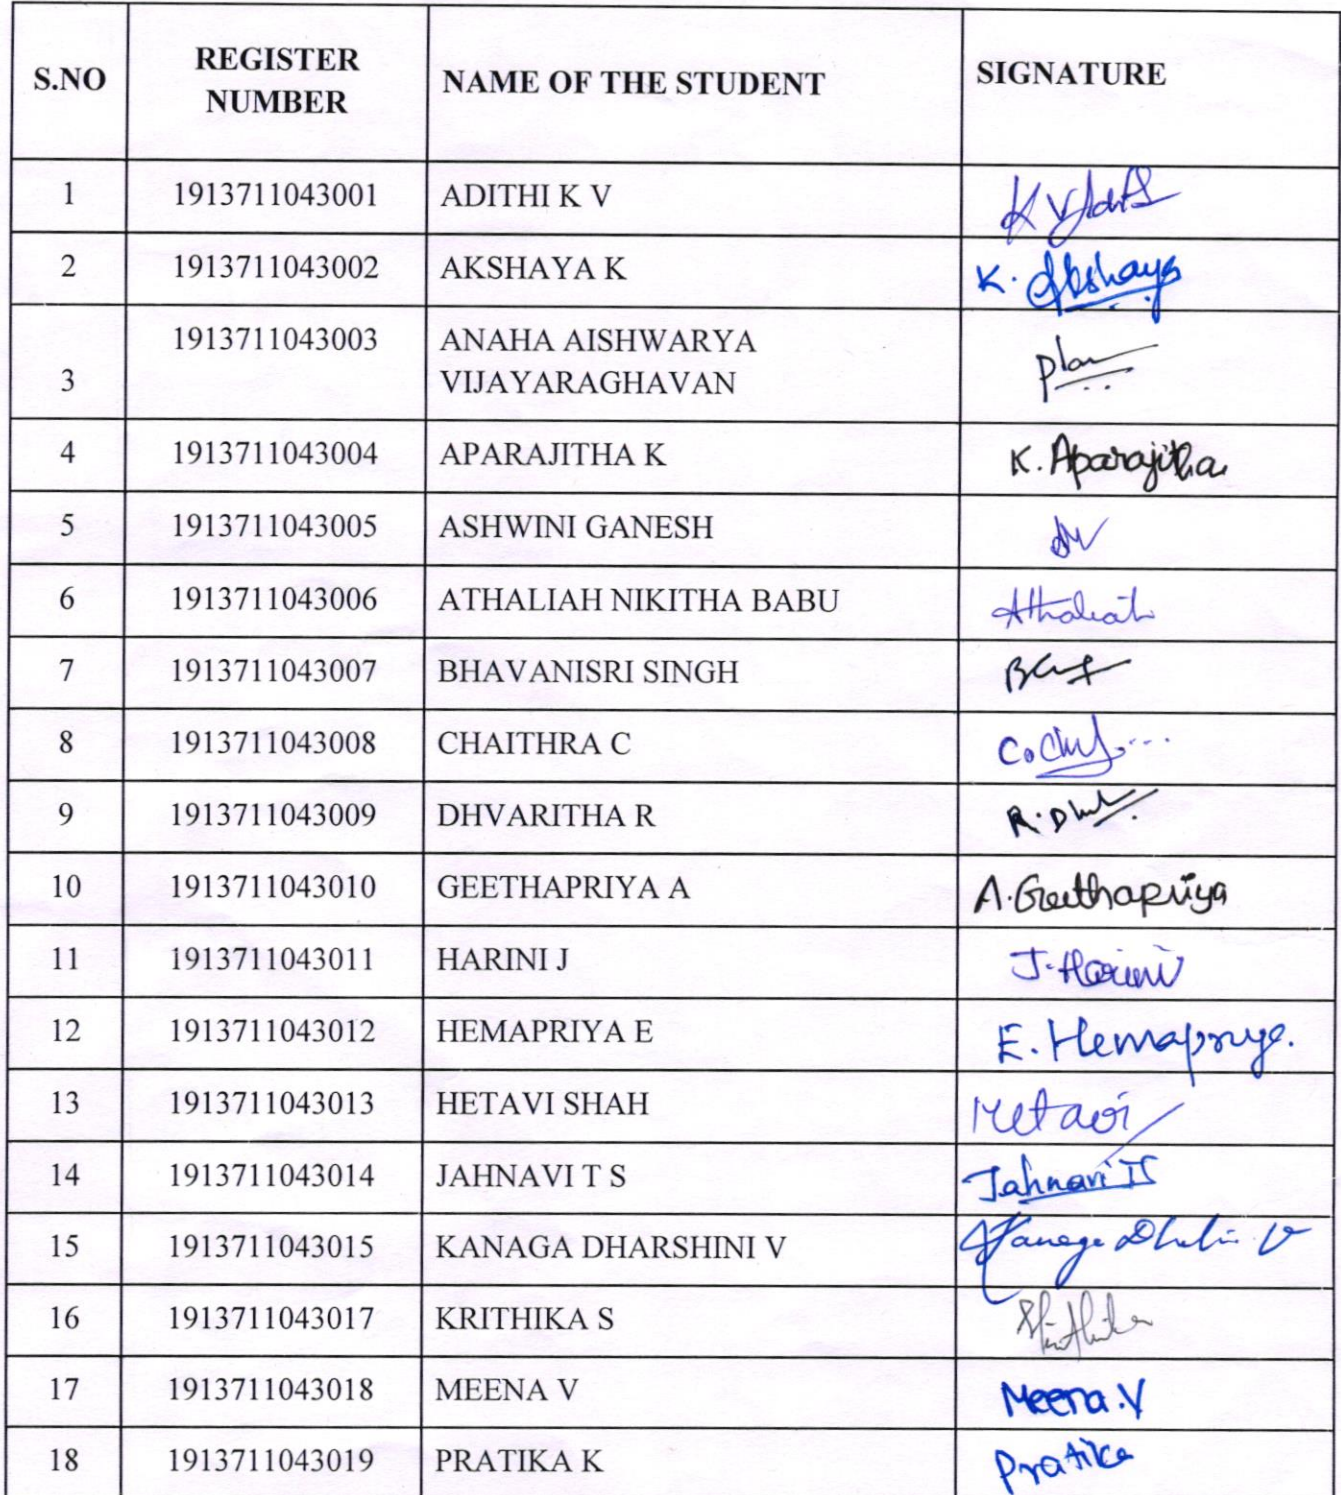 S.NO REGISTER NUMBER NAME OF THE STUDENT SIGNATURE
1 1913711043001 ADITHI K V K V Adit
2 1913711043002 AKSHAYA K K. Akshaya
3 1913711043003 ANAHA AISHWARYA
VIJAYARAGHAVAN
4 1913711043004 APARAJITHA K K. Aparajitha
5 1913711043005 ASHWINI GANESH
6 1913711043006 ATHALIAH NIKITHA BABU Athaliah
7 1913711043007 BHAVANISRI SINGH
8 1913711043008 CHAITHRA C
9 1913711043009 DHVARITHA R
10 1913711043010 GEETHAPRIYA A A. Geethapriya
11 1913711043011 HARINI J J. Harini
12 1913711043012 HEMAPRIYA E E. Hemapriya.
13 1913711043013 HETAVI SHAH Hetavi
14 1913711043014 JAHNAVI T S Jahnavi TS
15 1913711043015 KANAGA DHARSHINI V
16 1913711043017 KRITHIKA S
17 1913711043018 MEENA V Meena.V
18 1913711043019 PRATIKA K Pratika